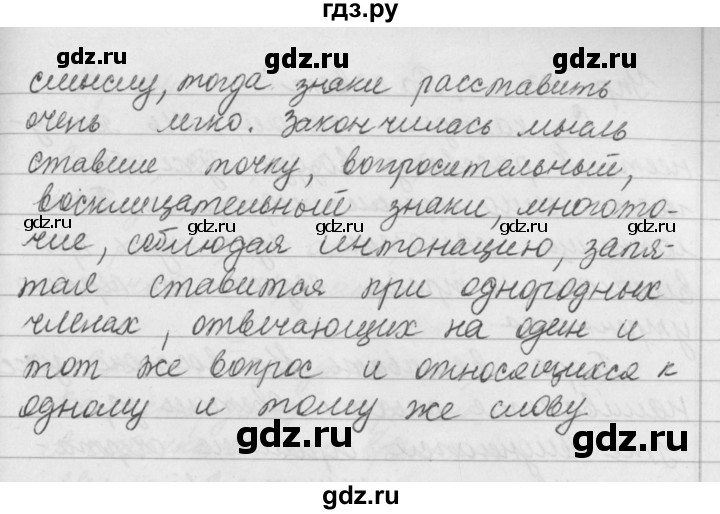 гдз.ру
смыслу, тогда знаки расставить
очень легко. Закончилась мысль
ставим точку, вопросительный,
восклицательный знаки, многото-
чие, соблюдая интонацию, запя-
тая ставится при однородных
членах, отвечающих на один и
тот же вопрос и относящихся к
одному и тому же слову
gdz.ru gdz.ru
gdz.ru gdz.ru gdz.ru
gdz.ru gdz.ru
gdz.ru